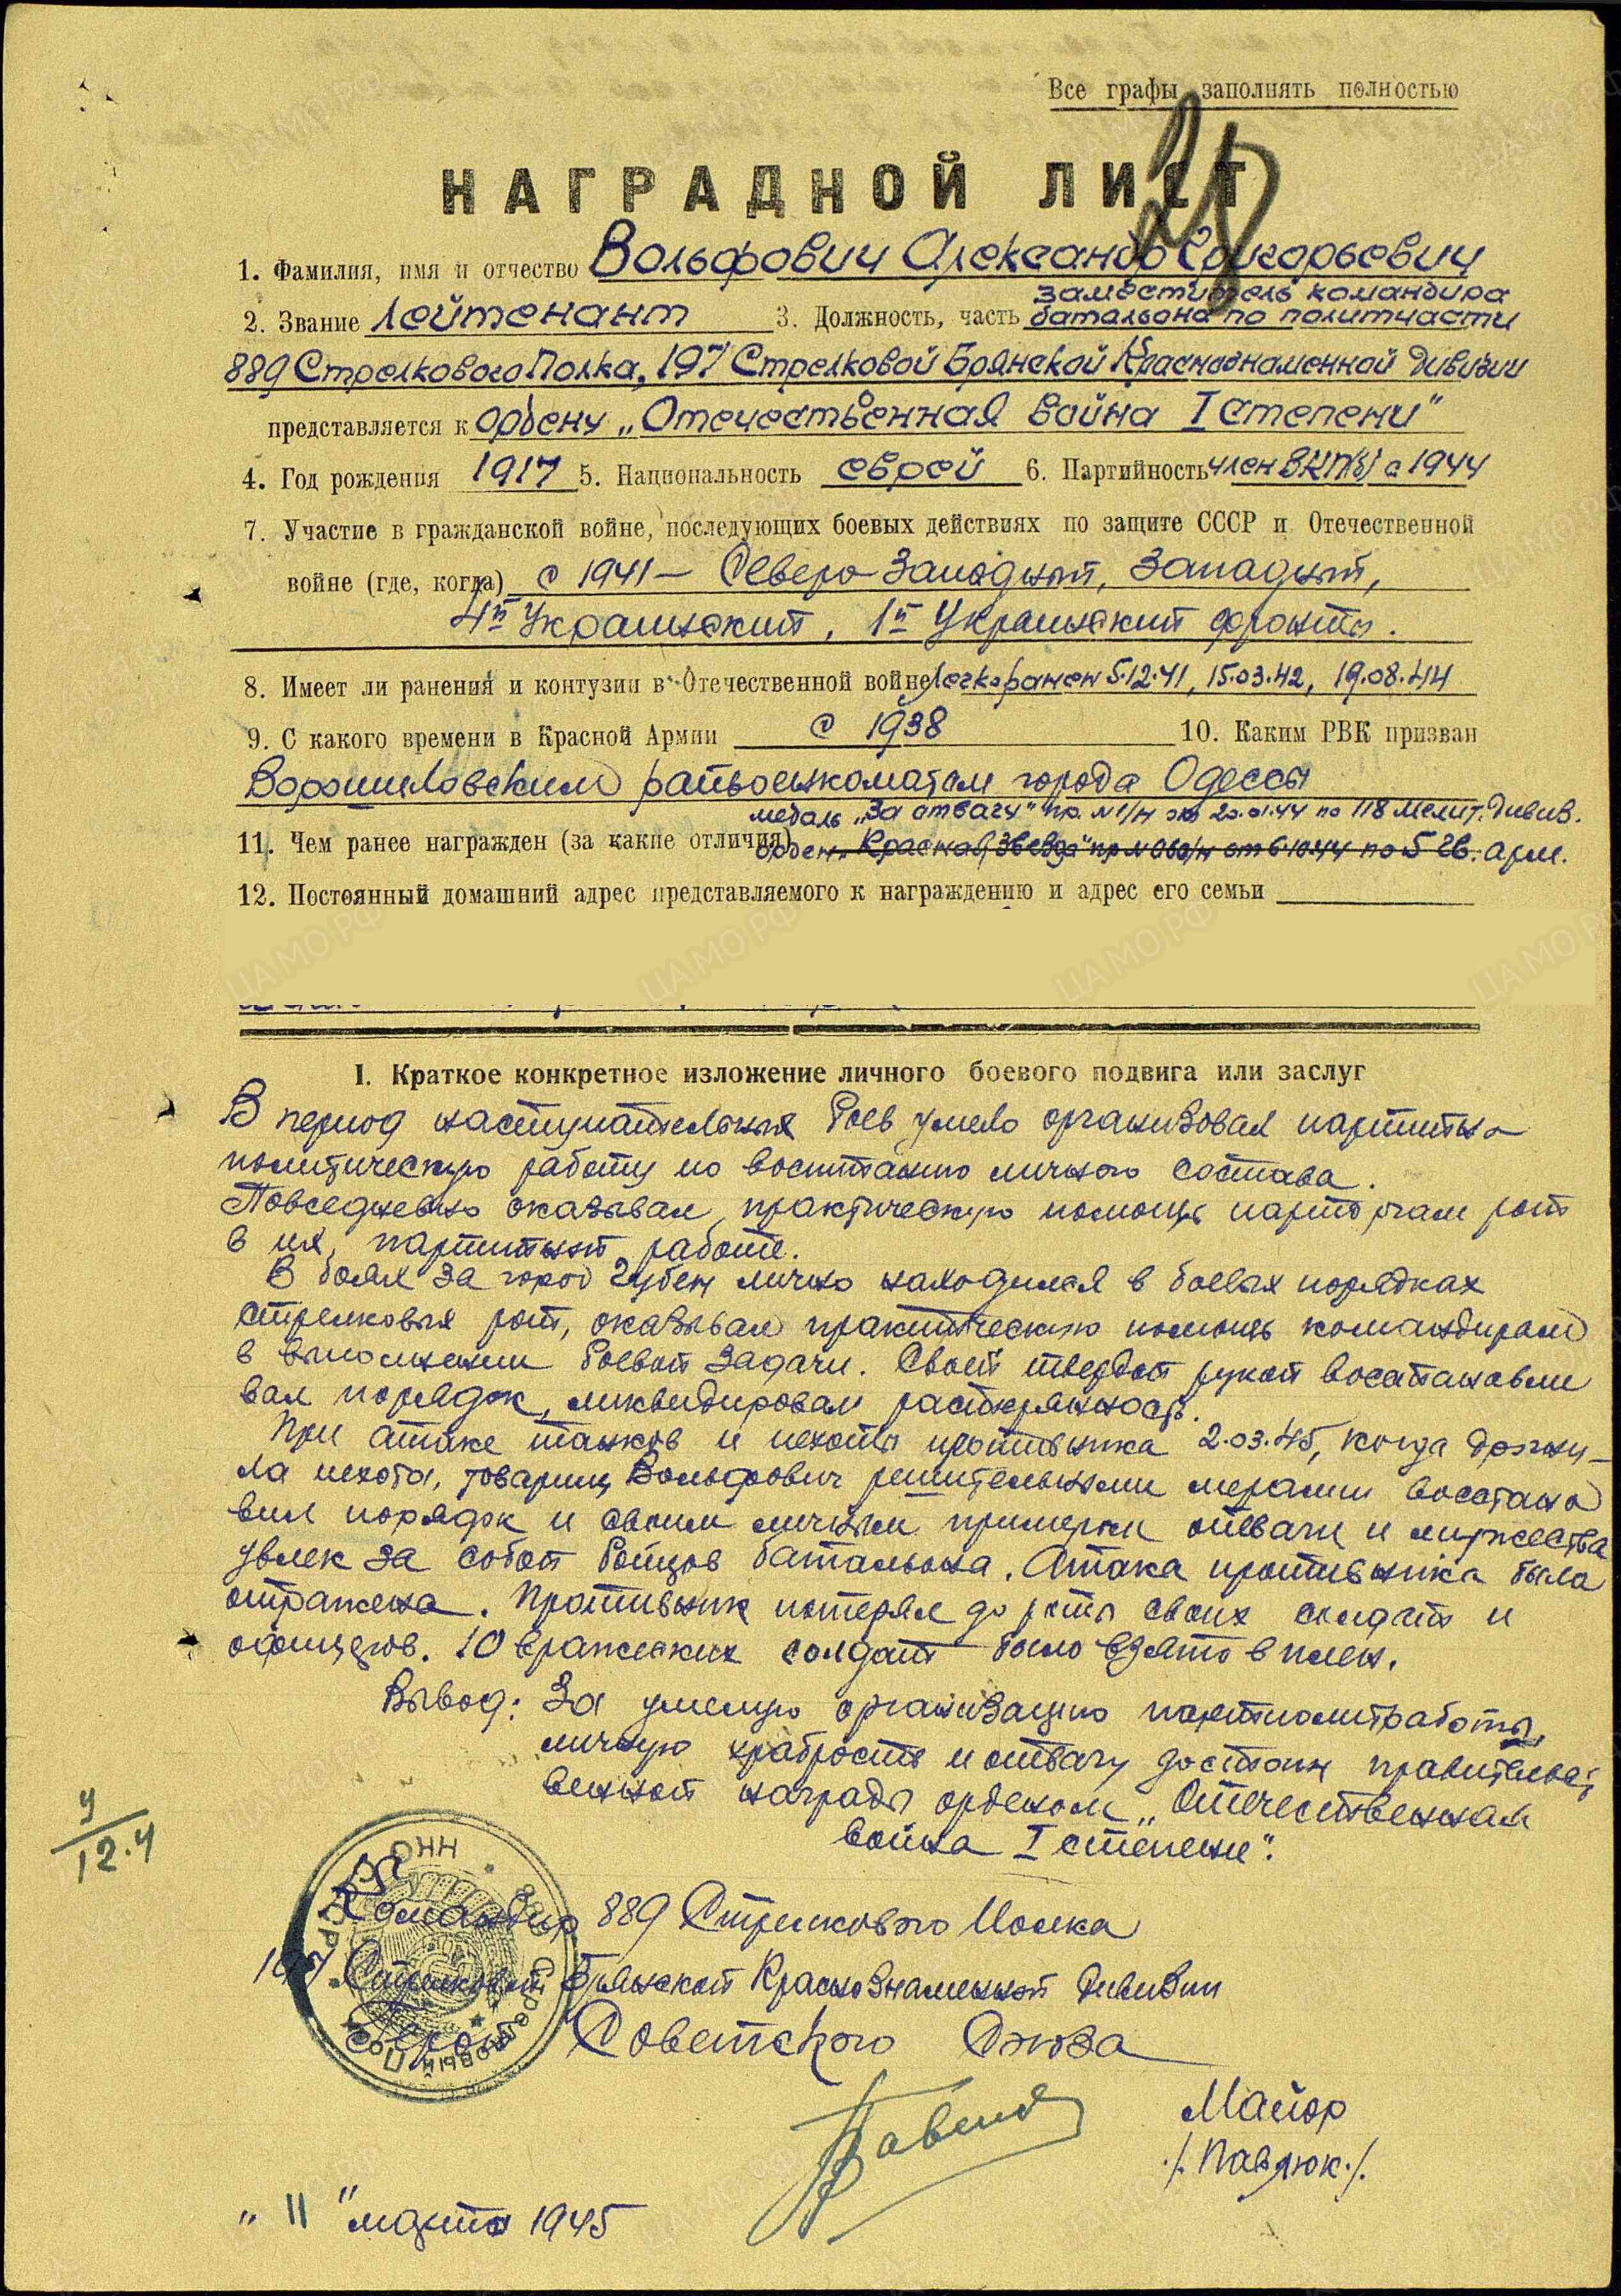 Все графы заполнять полностью
28
НАГРАДНОЙ ЛИСТ
1. Фамилия, имя и отчество Вольфович Александр Григорьевич
2. Звание Лейтенант 3. Должность, часть заместитель командира
батальона по политчасти
889 Стрелкового Полка, 197 Стрелковой Брянской Краснознаменной Дивизии
представляется к ордену „Отечественная война I степени"
4. Год рождения 1917 5. Национальность еврей 6. Партийность член ВКП(б) с 1944
7. Участие в гражданской войне, последующих боевых действиях по защите СССР и Отечественной
войне (где, когда) с 1941 — Северо-Западный, Западный,
4й Украинский, 1й Украинский фронты.
8. Имеет ли ранения и контузии в Отечественной войне легко ранен 5.12.41, 15.03.42, 19.08.44
9. С какого времени в Красной Армии с 1938 10. Каким РВК призван
Ворошиловским райвоенкоматом города Одессы
медаль „За отвагу" пр. № /н от 20.01.44 по 118 Мелит. Дивиз.
11. Чем ранее награжден (за какие отличия) орден „Красная Звезда" пр № 060/н от 6.10.44 по 5 Гв. арм.
12. Постоянный домашний адрес представляемого к награждению и адрес его семьи
I. Краткое конкретное изложение личного боевого подвига или заслуг
В период наступательных боев умело организовал партийно
политическую работу по воспитанию личного состава.
Повседневно оказывал практическую помощь парторгам рот
в их партийной работе.
В боях за город Губен лично находился в боевых порядках
стрелковых рот, оказывал практическую помощь командирам
в выполнении боевой задачи. Своей твердой рукой восстанавли
вал порядок, ликвидировал растерянность.
При атаке танков и пехоты противника 2.03.45, когда дрогну-
ла пехота, товарищ Вольфович решительными мерами восстано
вил порядок и своим личным примером отваги и мужества
увлек за собой бойцов батальона. Атака противника была
отражена. Противник потерял до роты своих солдат и
офицеров. 10 вражеских солдат было взято в плен.
Вывод: За умелую организацию партполитработы,
личную храбрость и отвагу достоин правительст
венной награды орденом „Отечественная
война I степени".
Командир 889 Стрелкового Полка
197 Стрелковой Брянской Краснознаменной Дивизии
Герой Советского Союза
Майор
/Павлюк./
„11" марта 1945
У
12.4